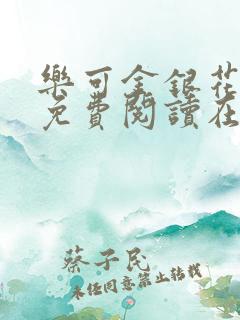 樂可金銀花
免費閱讀在
蔡子民
未任同意禁止转载